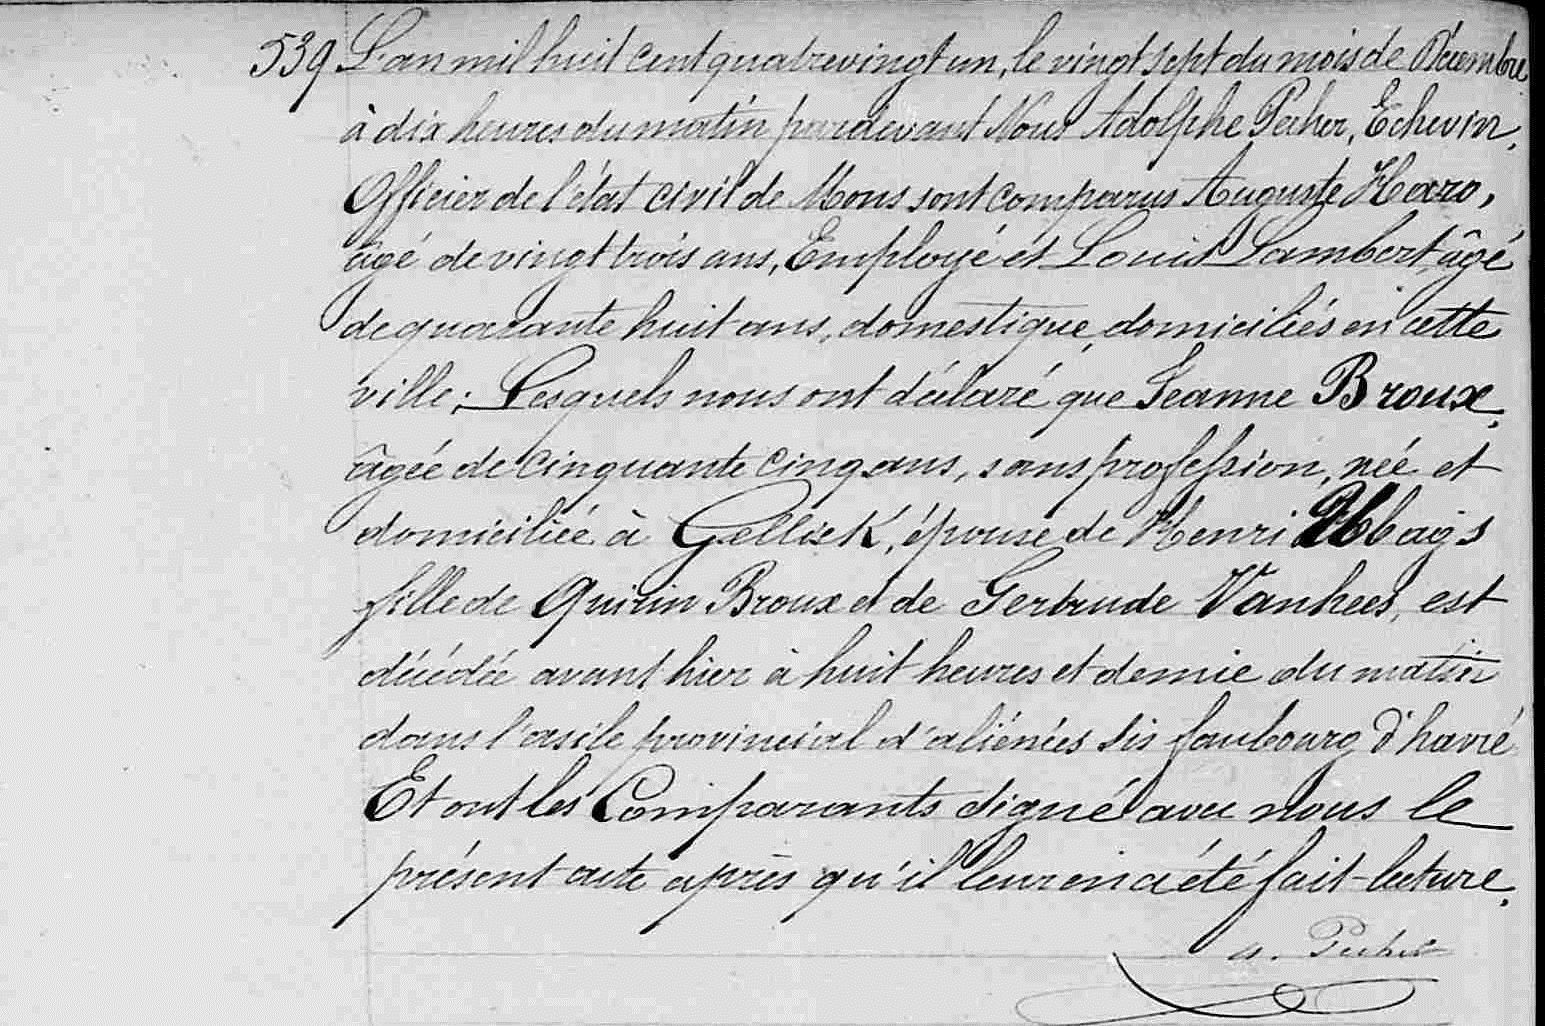 539 L'an mil huit cent quatrevingt un, le vingt sept du mois de Décembre
à dix heures du matin pardevant Nous Adolphe Pecher, Echevin,
Officier de l'état civil de Mons sont comparus Auguste Haro,
âgé de vingt trois ans, Employé et Louis Lambert, âgé
de quarante huit ans, domestique, domiciliés en cette
ville; Lesquels nous ont déclaré que Jeanne Broux,
âgée de cinquante cinq ans, sans profession, née et
domiciliée à Gellick, épouse de Henri
fille de Quirin Broux et de Gertrude Vanhees, est
décédée avant hier à huit heures et demie du matin
dans l'asile provincial d'aliénées sis faubourg d'havré
Et ont les Comparants signé avec nous le
présent acte après qu'il leur en a été fait lecture.
A. Pecher